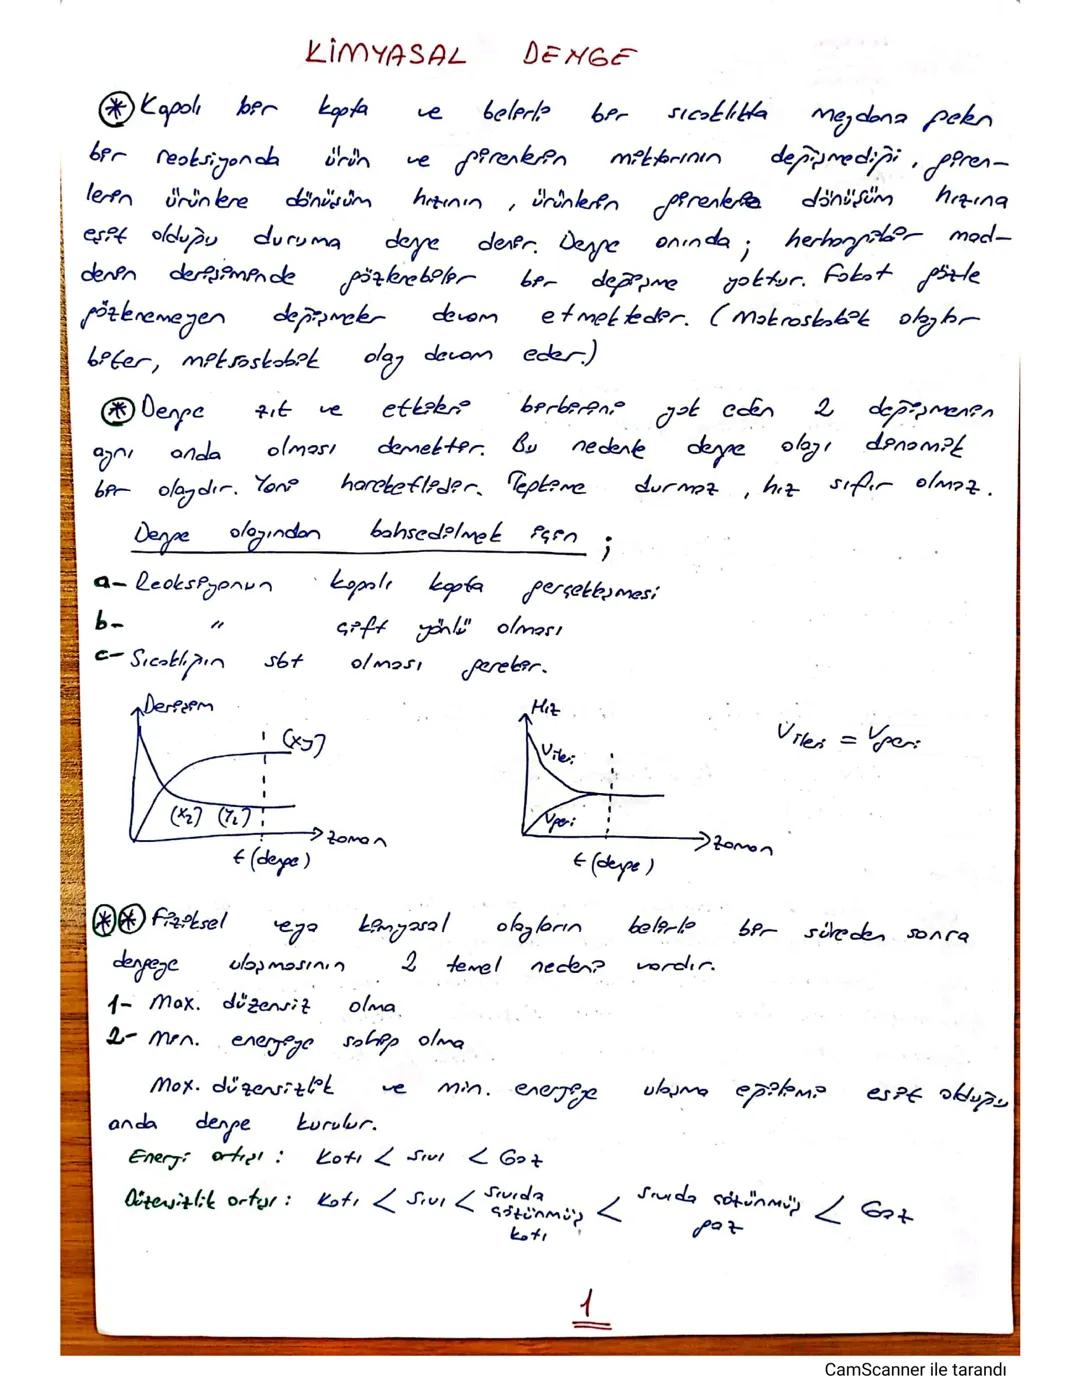 KİMYASAL DENGE
* Kapalı bir kapta ve belirli bir sıcaklıkta meydana gelen
bir reaksiyonda ürün ve girenlerin miktarının değişmediği, giren-
lerin ürünlere dönüşüm hızının, ürünlerin girenlere dönüşüm hızına
eşit olduğu duruma denge denir. Denge anında; herhangibir mad-
denin derişiminde gözlenebilir bir değişme yoktur. Fakat gözle
gözlenemeyen değişmeler devam etmektedir. (Makroskobik olaylar
biter, mikroskobik olay devam eder.)
* Denge zıt ve etkileri birbirini yok eden 2 değişmenin
aynı anda olması demektir. Bu nedenle denge olayı dinamik
bir olaydır. Yani hareketlidir. Tepkime durmaz, hız sıfır olmaz.
Denge olayından bahsedilmek için ;
a- Reaksiyonun kapalı kapta gerçekleşmesi
b- " çift yönlü olması
c- Sıcaklığın sbt olması gerekir.
Derişim
(xy)
(x2) (Y2)
zaman
t (denge)
Hız
Vileri
Vgeri
zaman
t (denge)
Vileri = Vgeri
** Fiziksel veya kimyasal olayların belirli bir süreden sonra
dengeye ulaşmasının 2 temel nedeni vardır.
1- Max. düzensiz olma
2- Min. enerjiye sahip olma
Max. düzensizlik ve min. enerjiye ulaşma eğilimi eşit olduğu
anda denge kurulur.
Enerji artışı : Katı < Sıvı < Gaz
Düzensizlik artışı : Katı < Sıvı < Sıvıda çözünmüş katı < Sıvıda çözünmüş gaz < Gaz
1
CamScanner ile tarandı